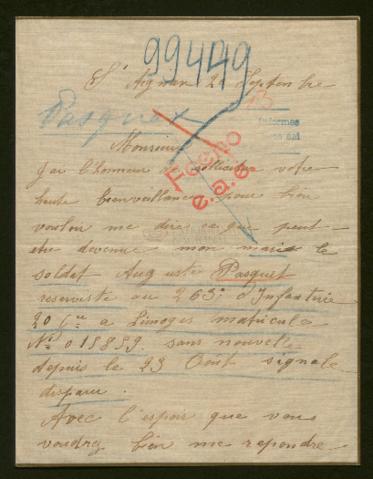 99449
St Aignan 20 Septembre
Pasquet
Monsieur
J'ai l'honneur de solliciter votre
haute bienveillance pour bien
vouloir me dire ce que peut-
etre devenue mon mari le
soldat Auguste Pasquet
reserviste au 263e d'Infanterie
20 Cie a Limoges matricule
No 015859. sans nouvelle
depuis le 23 Août signalé
disparu.
Avec l'espoir que vous
voudrez bien me repondre